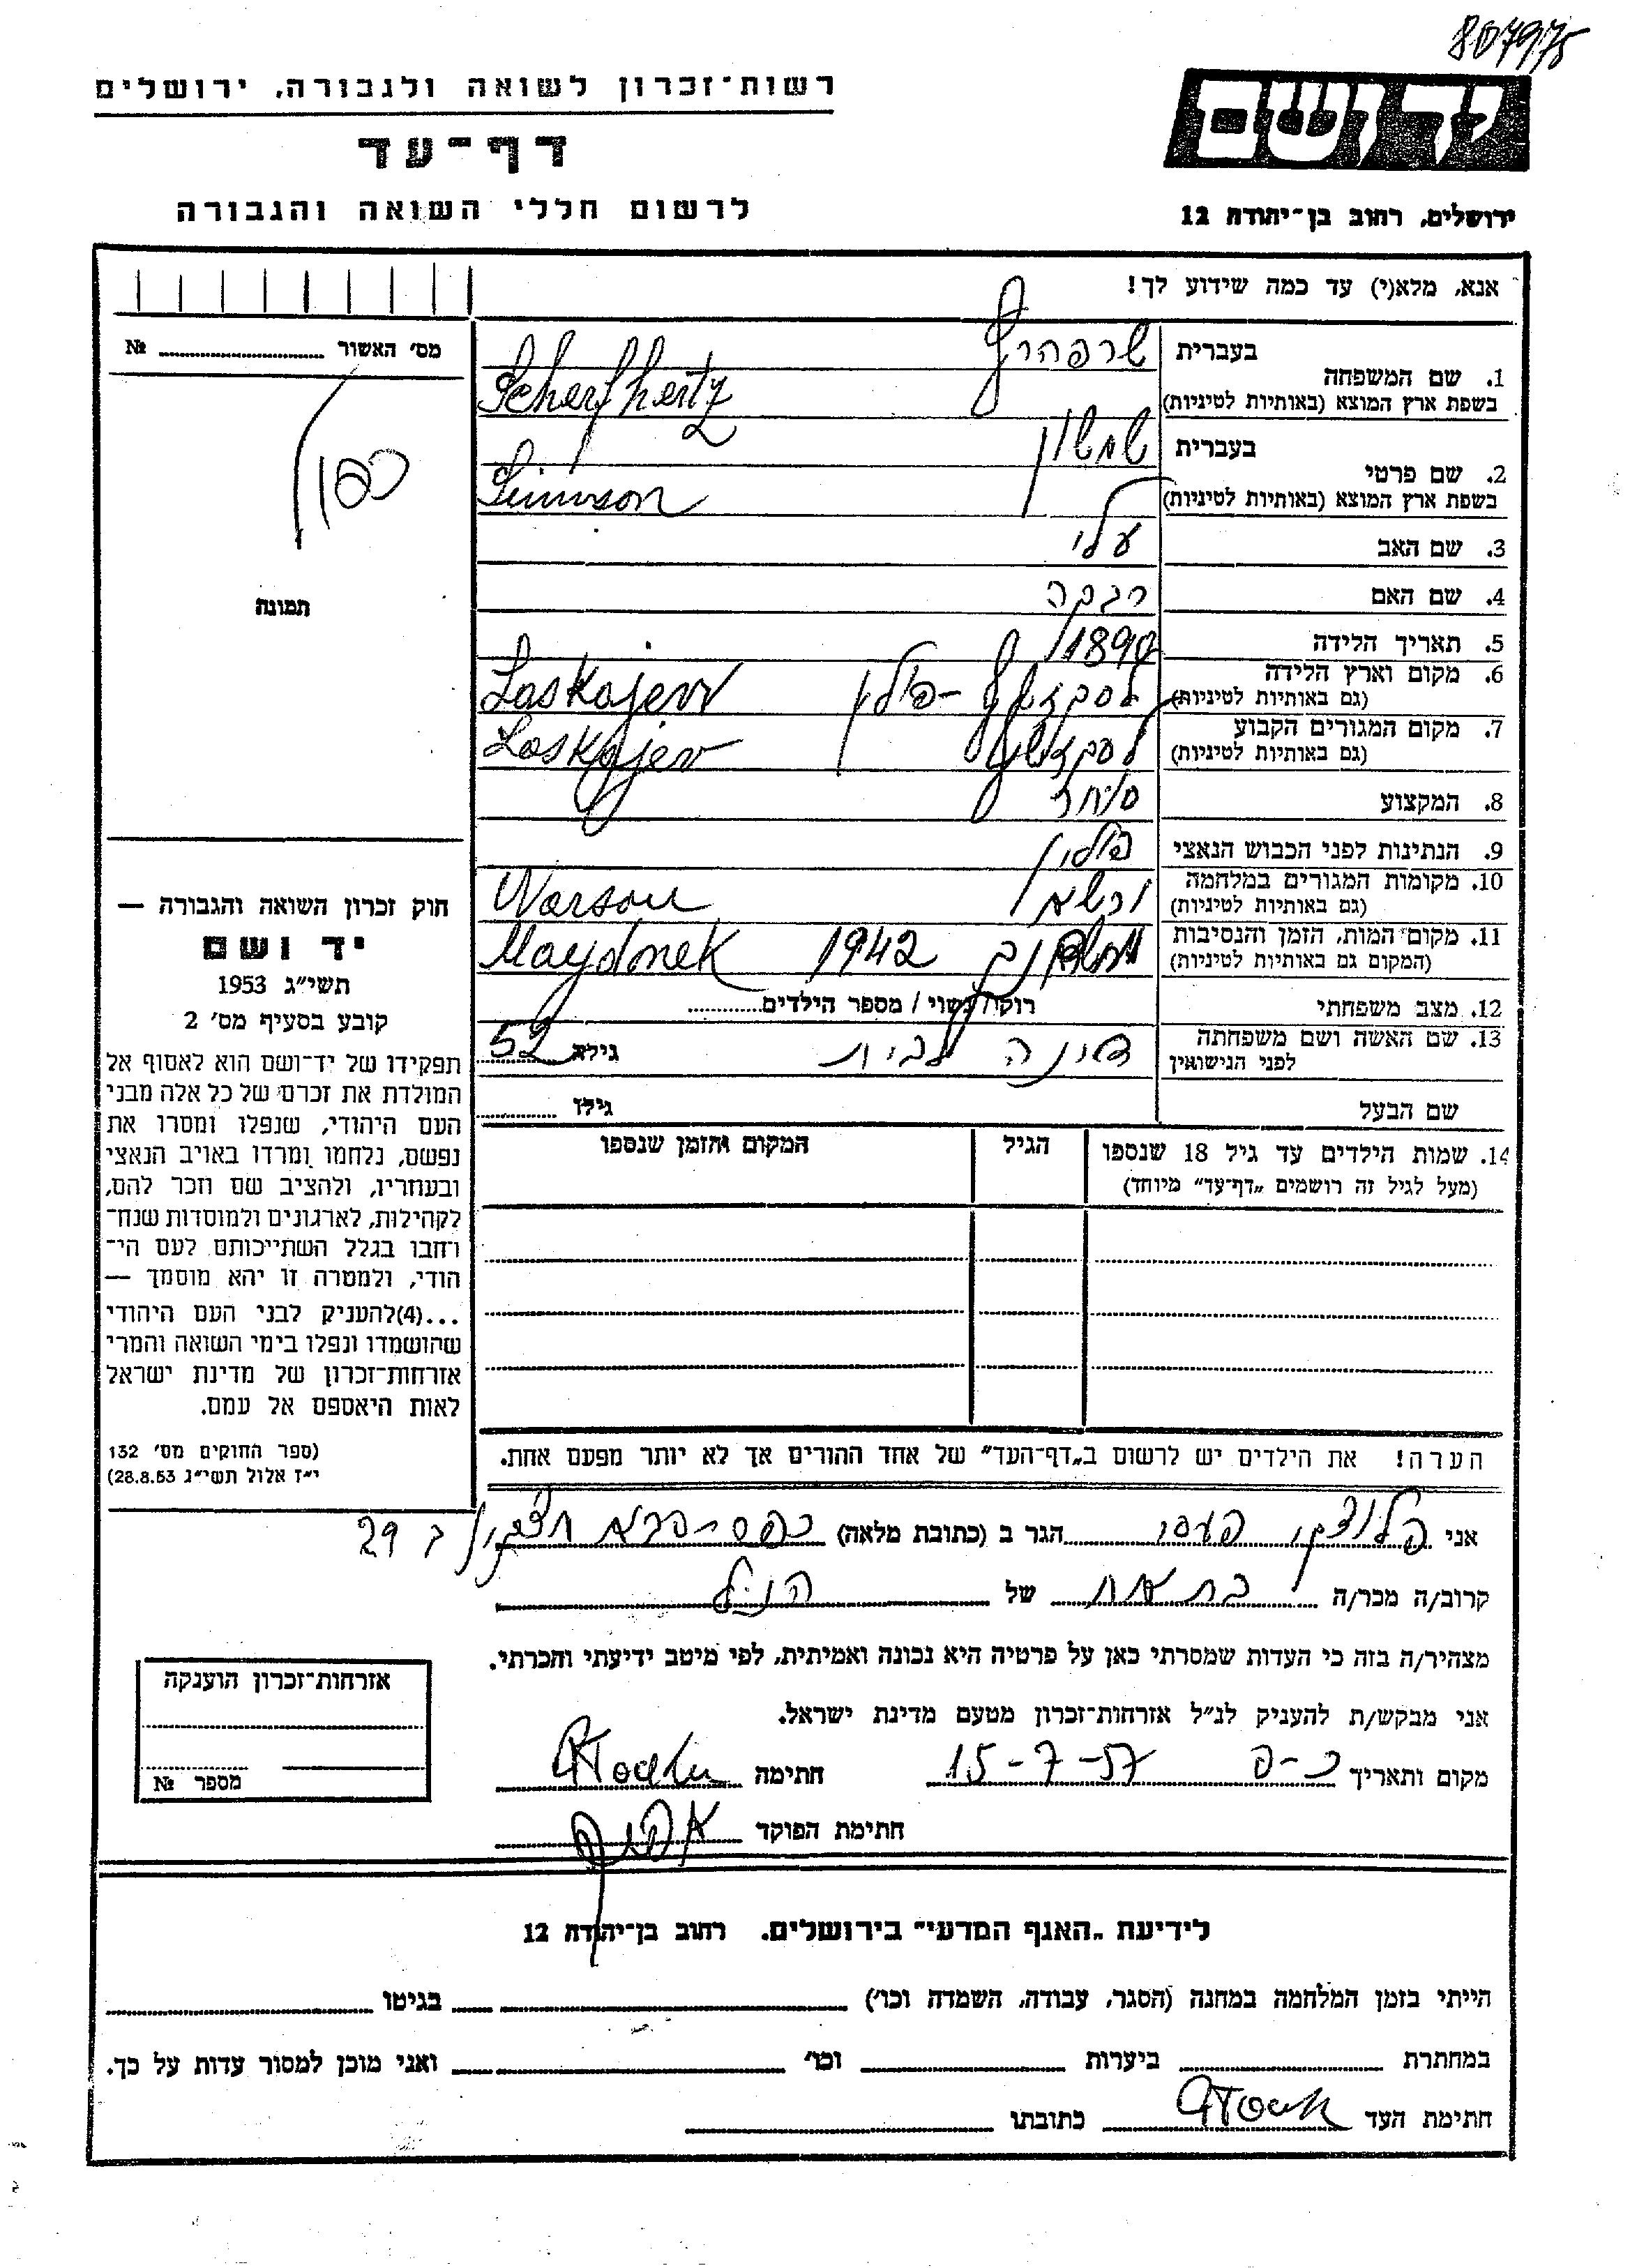 807975
רשות־זכרון לשואה ולגבורה, ירושלים
יד ושם
דף־עד
לרשום חללי השואה והגבורה
ירושלים, רחוב בן־יהודה 12
אנא, מלא(י) עד כמה שידוע לך!
מס׳ האשור № ..........
תמונה
1. שם המשפחה
בעברית שרפהרץ
בשפת ארץ המוצא (באותיות לטיניות) Scherfhertz
2. שם פרטי
בעברית שמשון
בשפת ארץ המוצא (באותיות לטיניות) Simson
3. שם האב עלי
4. שם האם רבקה
5. תאריך הלידה 1890
6. מקום וארץ הלידה
(גם באותיות לטיניות) פולין Laskajew
7. מקום המגורים הקבוע
(גם באותיות לטיניות) Laskajew
8. המקצוע סוחר
9. הנתינות לפני הכבוש הנאצי פולין
10. מקומות המגורים במלחמה
(גם באותיות לטיניות) ורשא Warsau
11. מקום המות, הזמן והנסיבות
(המקום גם באותיות לטיניות) 1942 Maydonek
12. מצב משפחתי רוק/ נשוי / מספר הילדים..........
13. שם האשה ושם משפחתה
לפני הנישואין דינה גילה 52
שם הבעל גילו ..........
14. שמות הילדים עד גיל 18 שנספו
(מעל לגיל זה רושמים „דף־עד” מיוחד)
הגיל
המקום והזמן שנספו
הערה! את הילדים יש לרשום ב„דף־העד” של אחד ההורים אך לא יותר מפעם אחת.
חוק זכרון השואה והגבורה —
יד ושם
תשי״ג 1953
קובע בסעיף מס׳ 2
תפקידו של יד־ושם הוא לאסוף אל
המולדת את זכרם של כל אלה מבני
העם היהודי, שנפלו ומסרו את
נפשם, נלחמו ומרדו באויב הנאצי
ובעוזריו, ולהציב שם וזכר להם,
לקהילות, לארגונים ולמוסדות שנח־
רחבו בגלל השתייכותם לעם הי־
הודי, ולמטרה זו יהא מוסמך —
...(4)להעניק לבני העם היהודי
שהושמדו ונפלו בימי השואה והמרי
אזרחות־זכרון של מדינת ישראל
לאות היאספם אל עמם.
(ספר החוקים מס׳ 132
י״ז אלול תשי״ג 28.8.53)
אני הגר ב (כתובת מלאה) כפר סבא 29
קרוב/ה מכר/ה בת אח של הנ״ל
מצהיר/ה בזה כי העדות שמסרתי כאן על פרטיה היא נכונה ואמיתית, לפי מיטב ידיעתי והכרתי.
אני מבקש/ת להעניק לנ״ל אזרחות־זכרון מטעם מדינת ישראל.
מקום ותאריך 15-7-57 חתימה
חתימת הפוקד
אזרחות־זכרון הוענקה
מספר №
לידיעת „האגף המדעי” בירושלים. רחוב בן־יהודה 12
הייתי בזמן המלחמה במחנה (הסגר, עבודה, השמדה וכו׳) בגיטו
במחתרת ביערות וכו׳ ואני מוכן למסור עדות על כך.
חתימת העד כתובתו